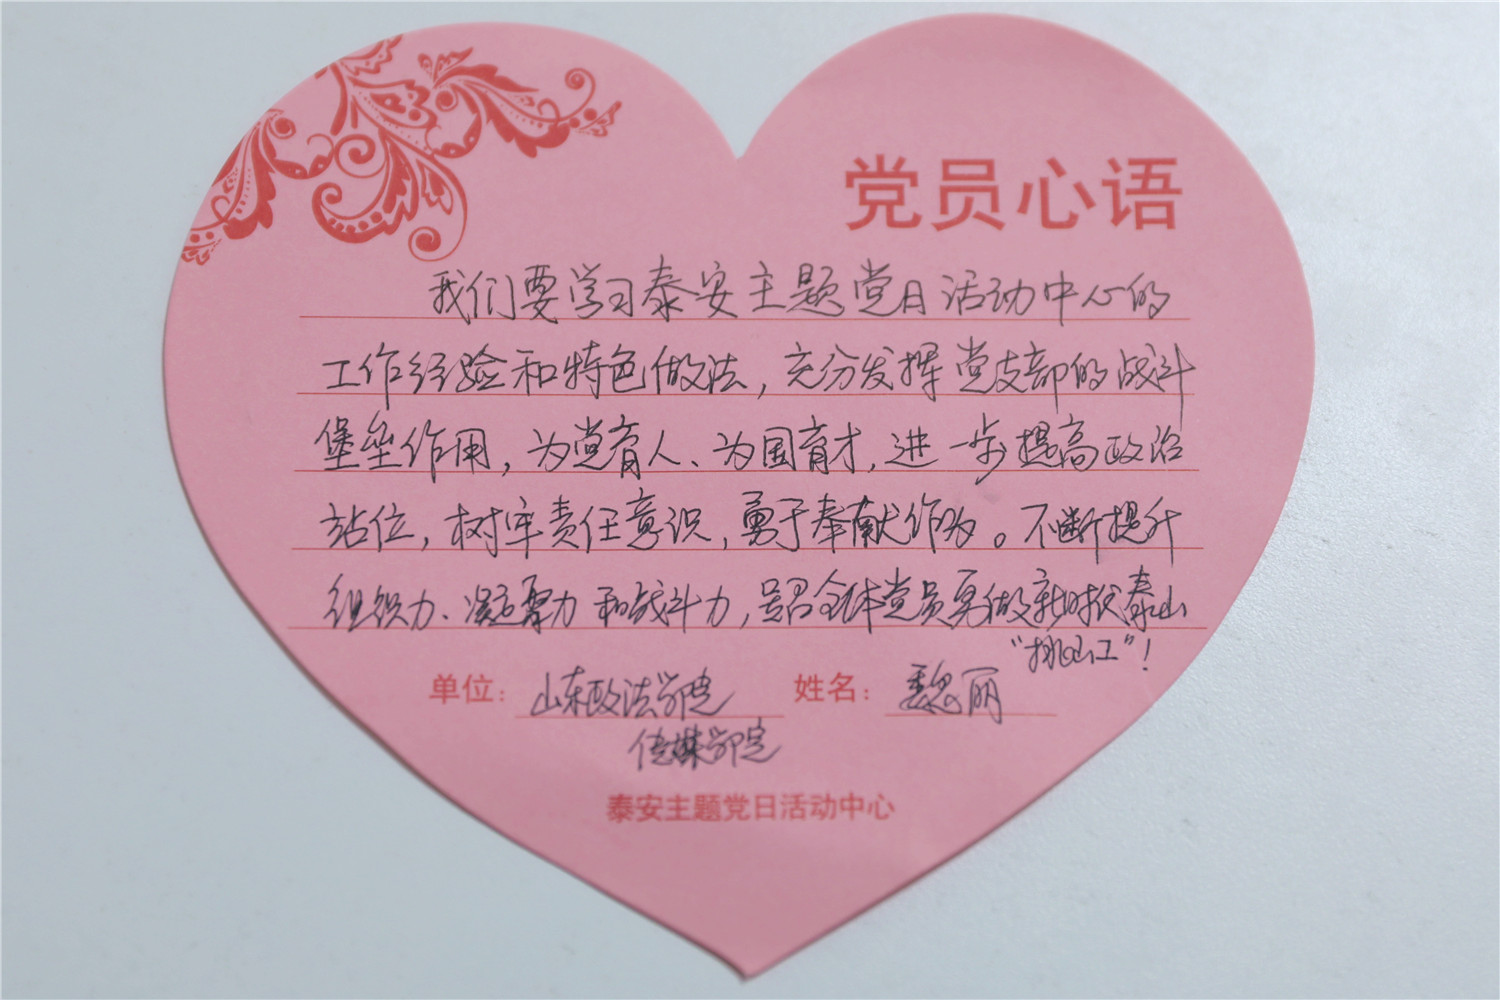 党员心语
我们要学习泰安主题党日活动中心的
工作经验和特色做法，充分发挥党支部的战斗
堡垒作用，为党育人、为国育才，进一步提高政治
站位，树牢责任意识，勇于奉献作为。不断提升
组织力、凝聚力和战斗力，号召全体党员勇做新时代泰山
“挑山工”！
单位：山东政法学院 姓名：魏丽
传媒学院
泰安主题党日活动中心